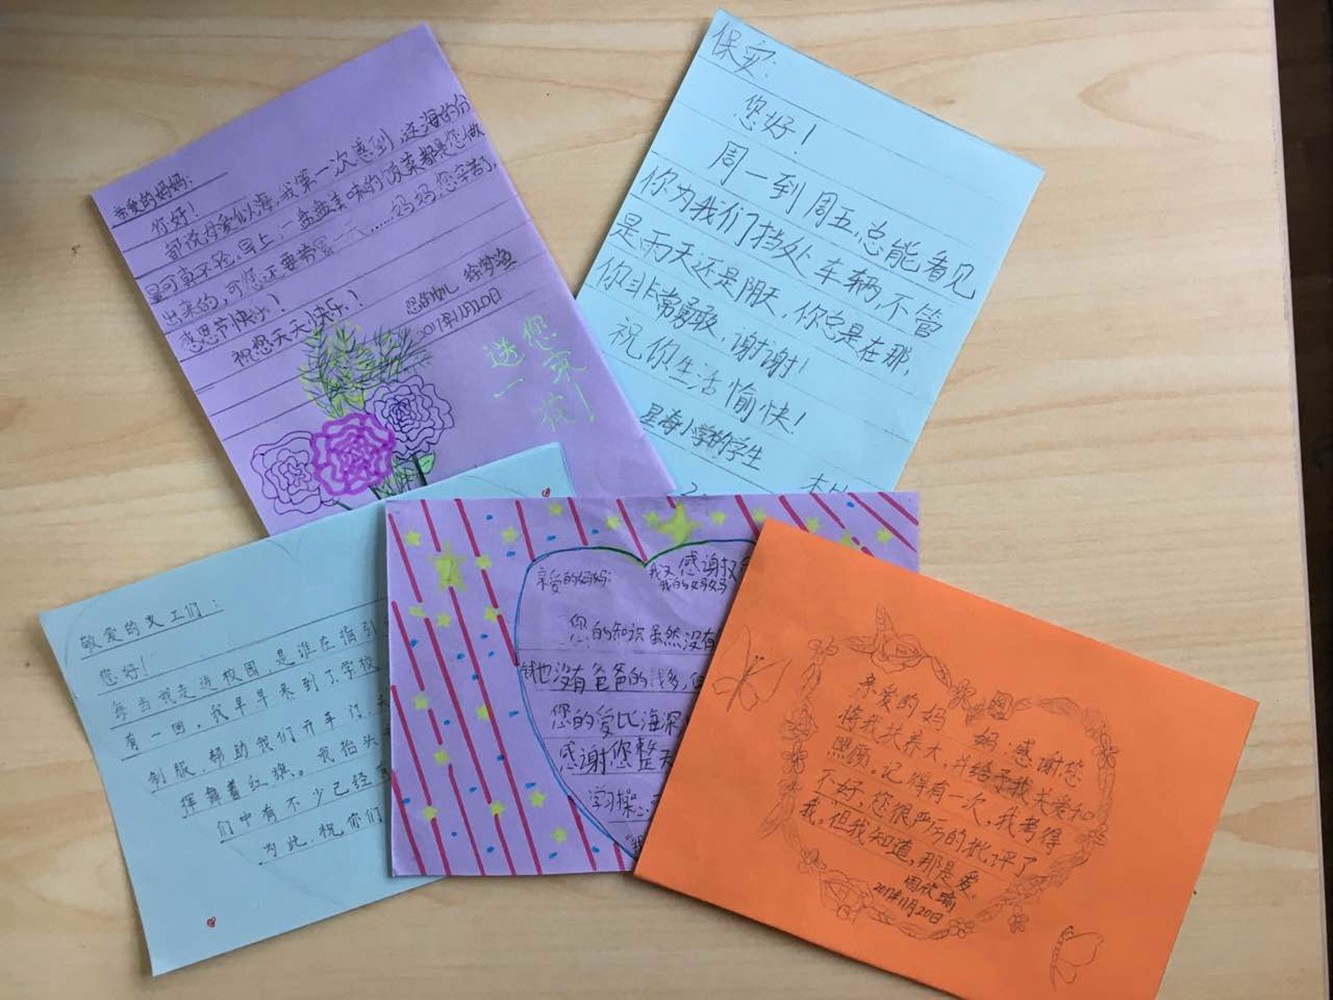 亲爱的妈妈:
你好!
都说母爱似海,我第一次感到,这海的分
量可真不轻,早上,一盘盘美味的饭菜都是您做
出来的,可您还要劳累一天……妈妈,您辛苦了,
感恩节快乐!
祝您天天快乐!
您的
2017年11月20日
送您一
花!
保安:
您好!
周一到周五,总能看见
你为我们挡处车辆,不管
是雨天还是阴天,你总是在那,
你非常勇敢,谢谢!
祝你生活愉快!
星海小学的学生
敬爱的义工们:
您好!
每当我走进校园,是谁在指引
有一回,我早早来到了学校
制服,帮助我们开车门
挥舞着红旗。我抬头
们中有不少已经
为此,祝你们
亲爱的妈妈:
我又感谢
我的妈妈
您的知识虽然没有
也没有爸爸的钱多,但
您的爱比海深
感谢您整天
学习操心
亲爱的妈妈:感谢您
将我扶养大,并给予我关爱和
照顾。记得有一次,我考得
不好,您很严厉的批评了
我,但我知道,那是爱。
周欣
2017年11月20日